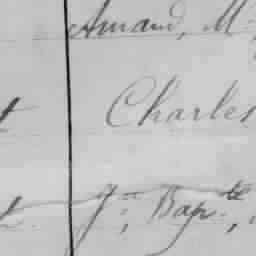 Amand, M
t Charles
t. Jn, Bapte,